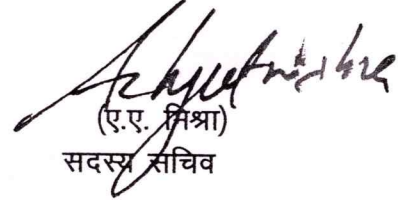 Achyutmishra
(ए.ए. मिश्रा)
सदस्य सचिव